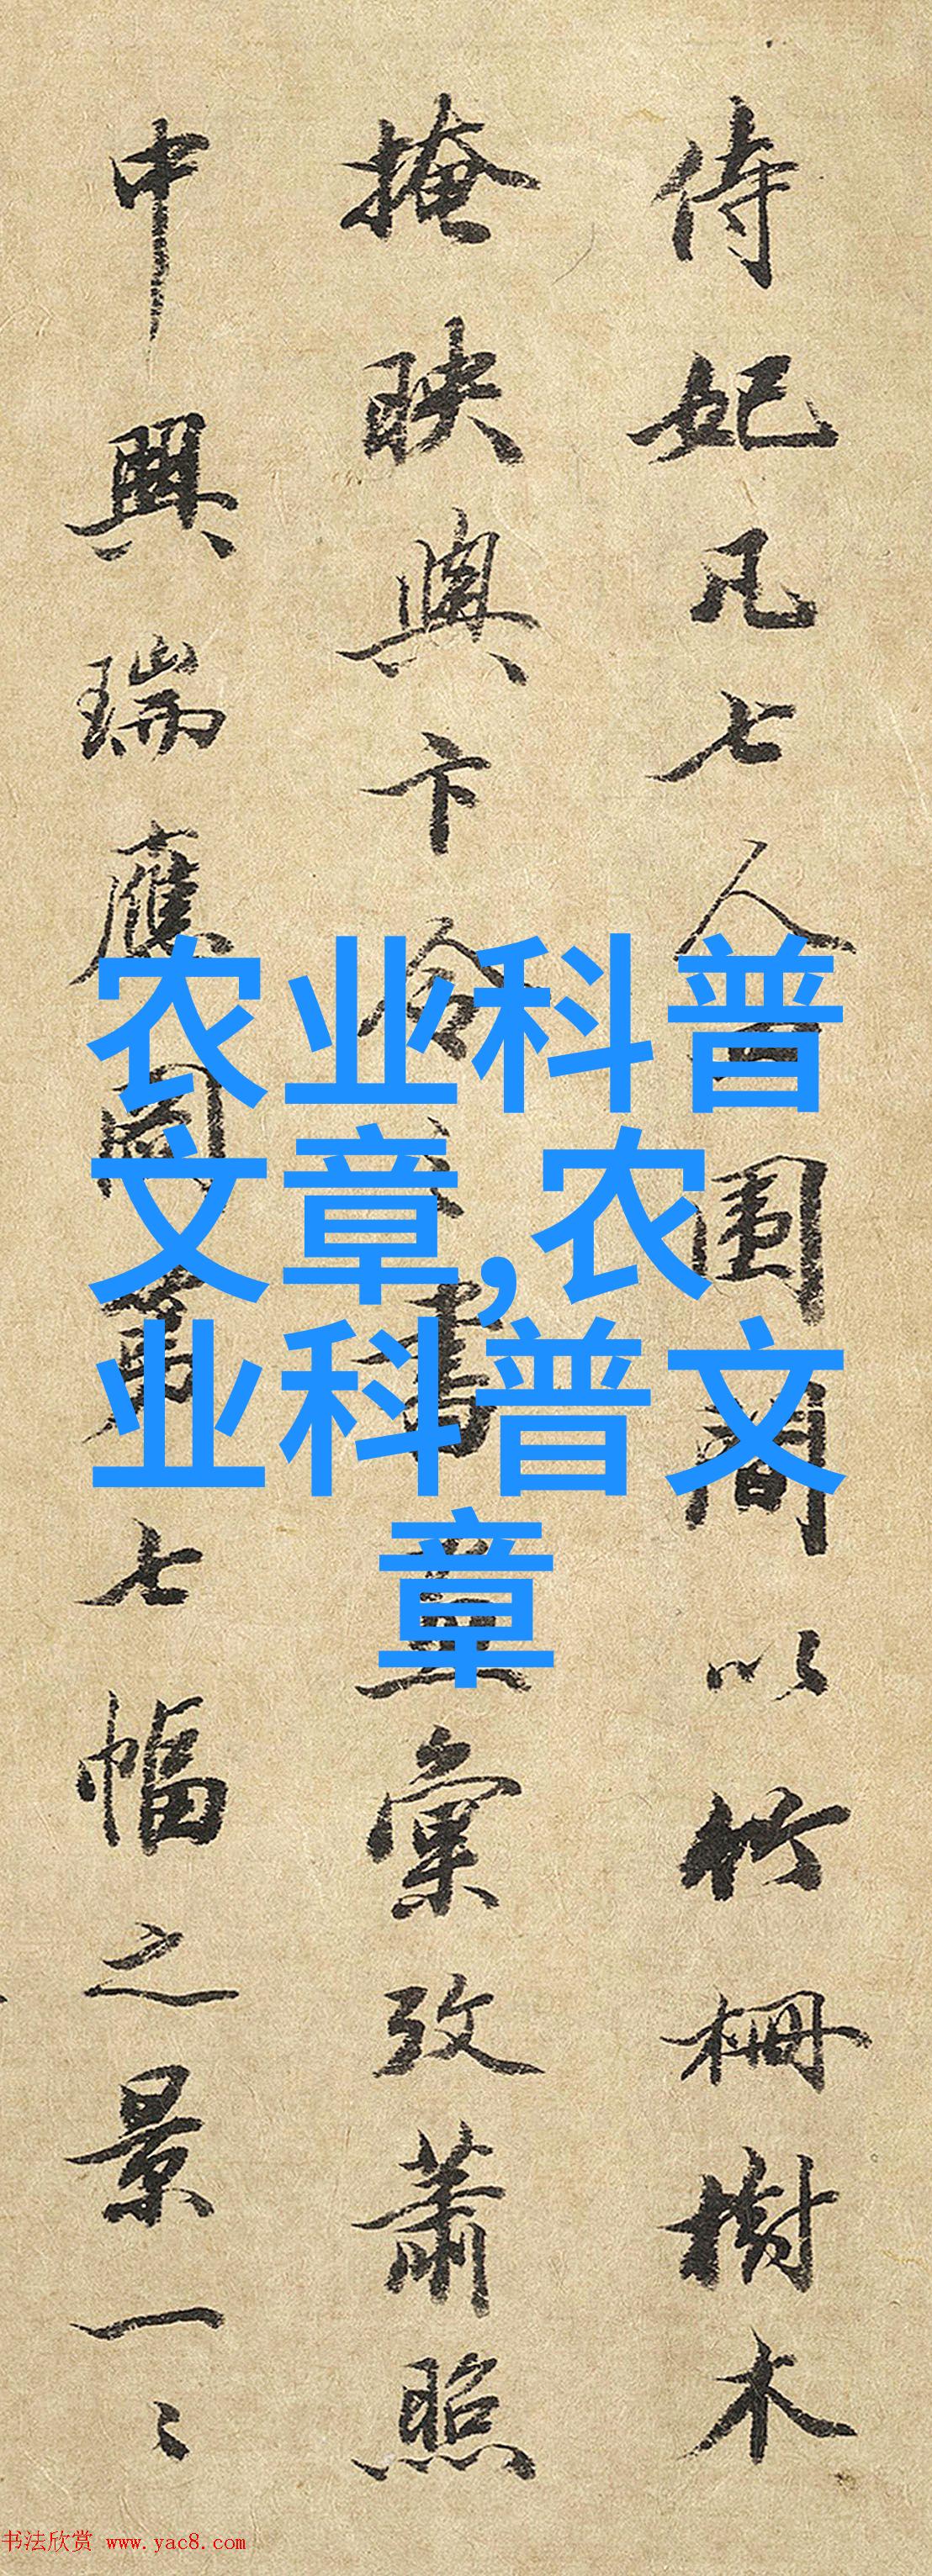 侍妃凡七人
围
間以竹柵樹木
掩映與卞令
書
彙攷蕭照
中興瑞應圖第七幅之景一々
农业科普
文章,农
业科普文
章
书法欣赏 www.yac8.com